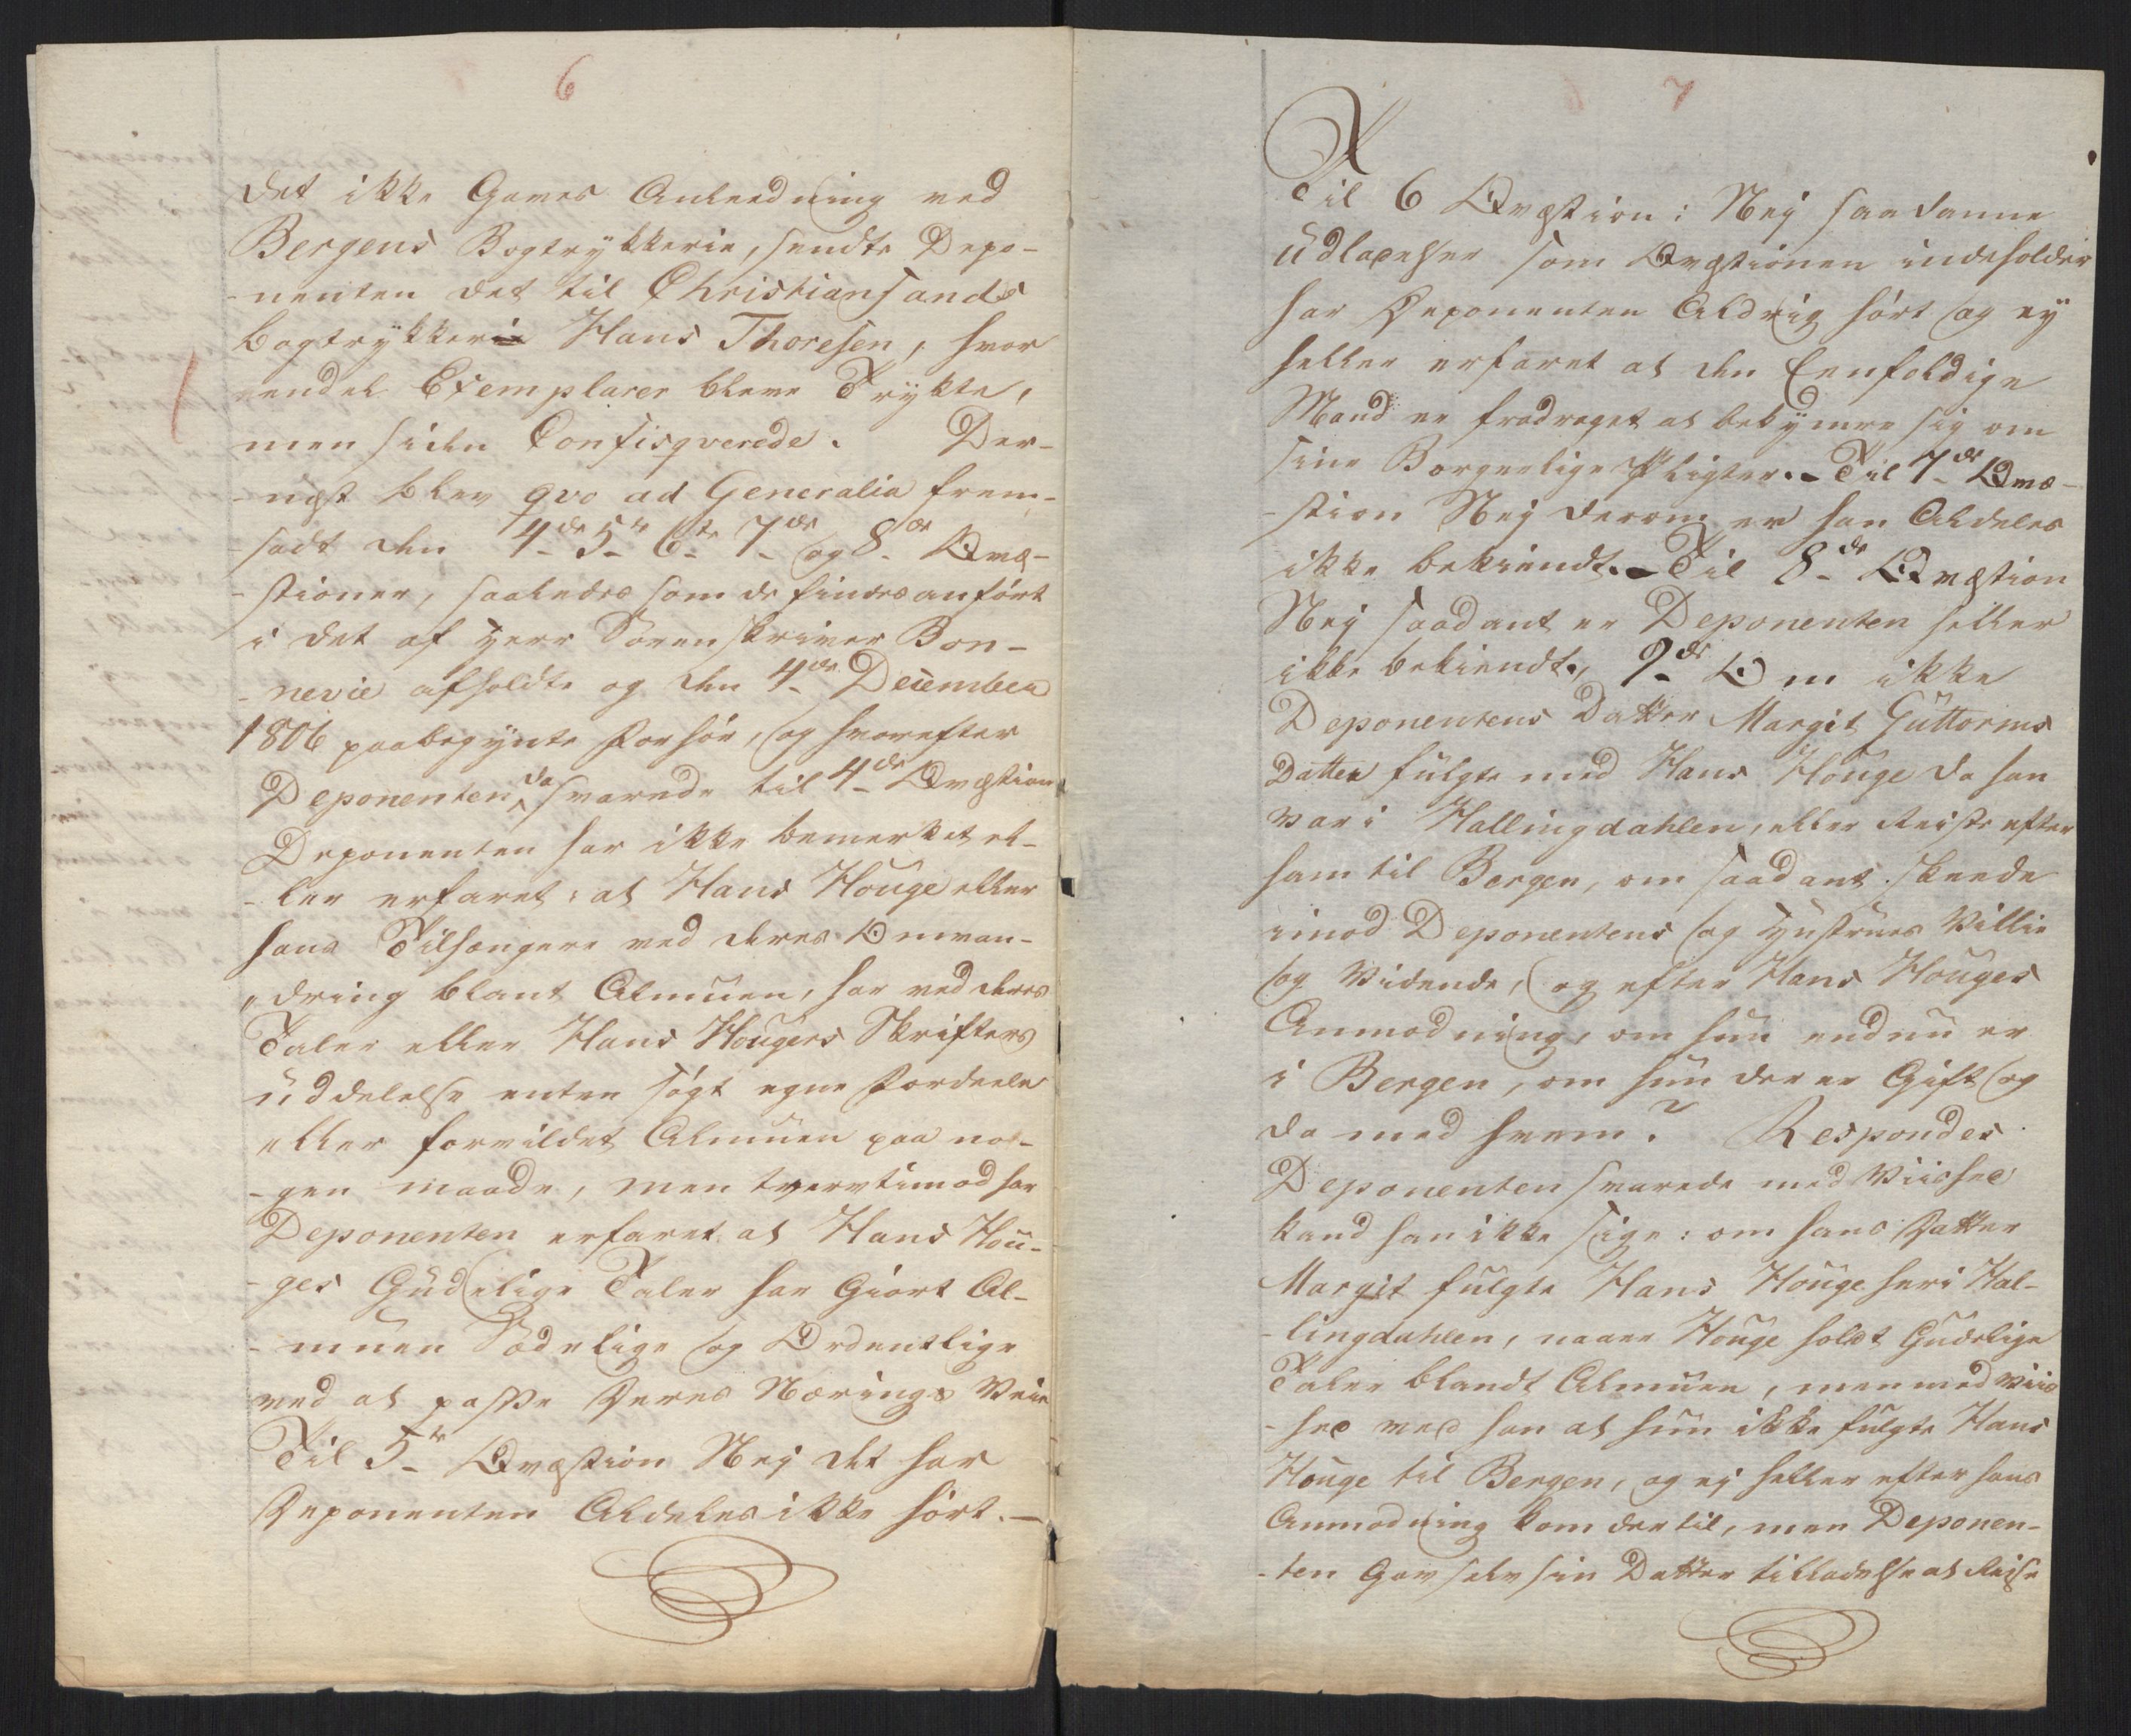 6
det ikke Gaves Anleedning ved
Bergens Bogtrykkerie, sendte Depo-
-nenten det til Christiansands
bogtrykkerie Hans Thoresen, hvor
endel Exemplarer bleve Trykte,
men siden Confisqverede. Der-
-nest blev qvo ad Generalia frem-
-sadt den 4de 5te 6te 7de og 8de Qvæ-
-stioner, saaledes som de findes anført
i det af Herr Sorenskriver Bon-
-nevie afholdte og den 4de December
1806 paabegyndte Forhør, og hvorefter
Deponenten da svarede til 4de Qvæstion
Deponenten har ikke bemerket el-
-ler erfaret: at Hans Houge eller
hans Tilhængere ved deres Omvan-
„dring blant Almuen, har ved deres
Taler eller Hans Hougers Skrifters
uddelelse enten søgt egne Fordeele
eller forvildet Almuen paa no-
-gen maade, men tvertimod har
Deponenten erfaret at Hans Hou-
-ges Gudelige Taler har Giort Al-
-muen Sædelige og Ordentlige
ved at passe Deres Nærings Veie
Til 5te Qvæstion Nej det har
Deponenten Aldeles ikke hørt.—
7
Til 6 Qvæstion: Nej saadanne
udladelser som Qvæstionen indeholder
har Deponenten Aldrig hørt og ey
heller erfaret at den Eenfoldige
Mand er fradraget at bekymre sig om
sine Borgerlige Pligter.- Til 7de Qvæ-
-stion Nej derom er han Aldeles
ikke bekiendt.- Til 8de Qvæstion
Nej saadant er Deponenten heller
ikke bekiendt, 9de Om ikke
Deponentens Datter Margit Guttorms
Datter fulgte med Hans Houge da han
var i Hallingdahlen, eller Reiste efter
ham til Bergen, om saadant skeede
imod Deponentens og Hustrues Villie
og Vidende, og efter Hans Houges
Anmodning, om hun endnu er
i Bergen, om hun der er Gift og
da med hvem? Respondes
Deponenten svarede med Viished
kand han ikke sige: om hans Datter
Margit fulgte Hans Houge her i Hal-
-lingdahlen, naaer Houge holdt Gudelige
Taler blandt Almuen, men med viis
-hed ved han at hun ikke fulgte Hans
Houge til Bergen, og ej heller efter hans
Anmodning kom dertil, men Deponen-
-ten Gav selv sin Datter tilladelse at Reise